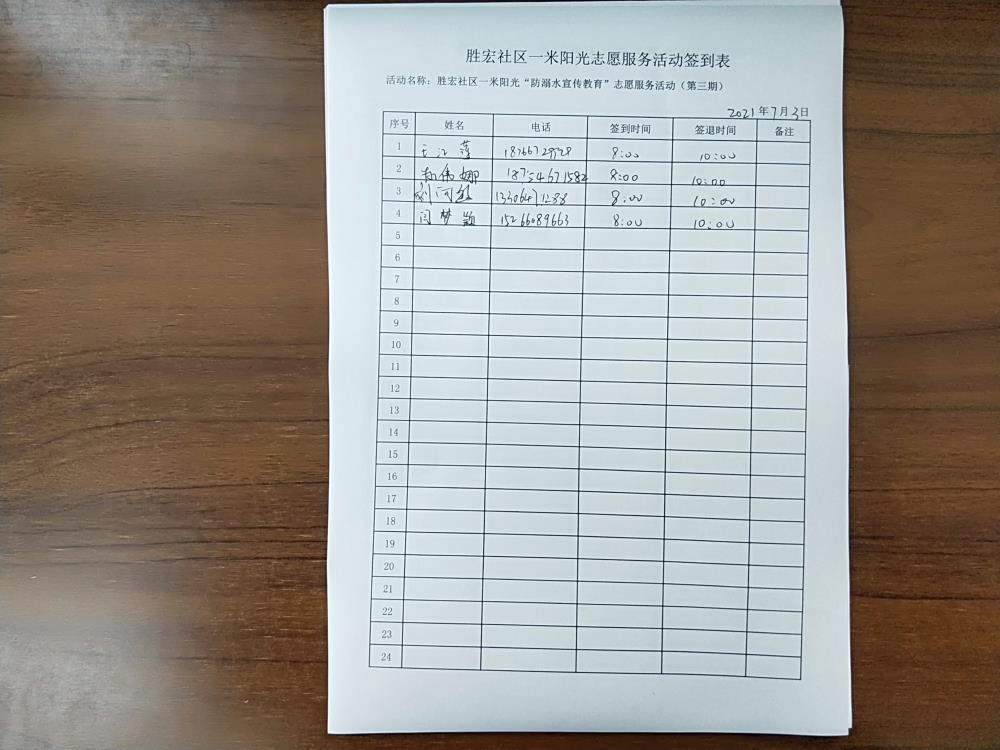 胜宏社区一米阳光志愿服务活动签到表
活动名称：胜宏社区一米阳光“防溺水宣传教育”志愿服务活动（第三期）
2021年7月3日
序号 姓名 电话 签到时间 签退时间 备注
1 8:00 10:00
2 伟娜 18754671582 8:00 10:00
3 刘河 8:00 10:00
4 闫梦颖 15266089663 8:00 10:00
5
6
7
8
9
10
11
12
13
14
15
16
17
18
19
20
21
22
23
24